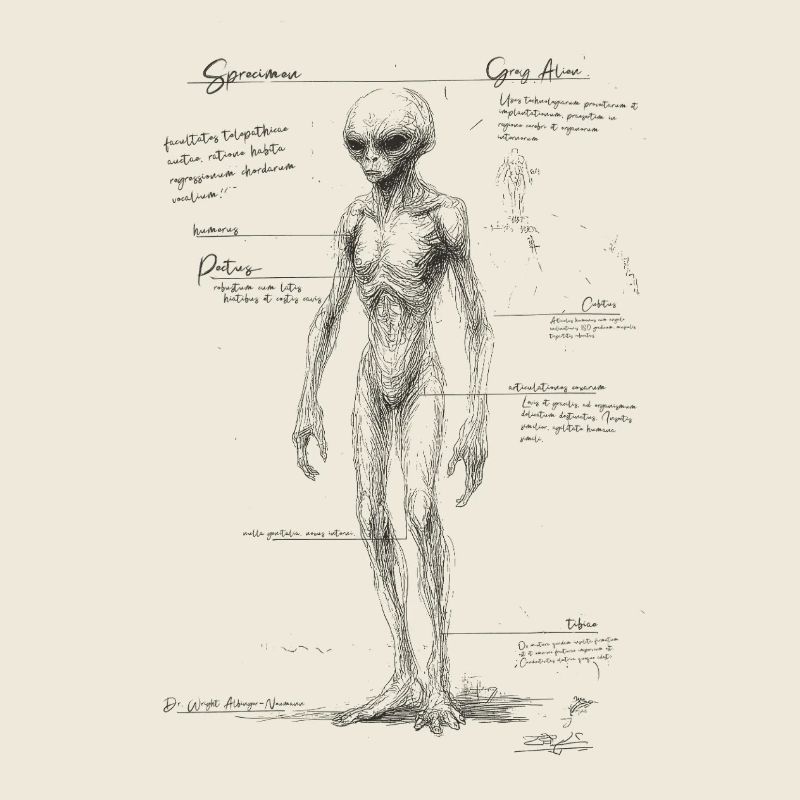 Specimen
Grey Alien.
Uses technologiarum procuratum et
implantationum, praesertim in
regione cerebri et organorum
internorum
facultates telepathicae
auctae. ratione habita
regressionum chordarum
vocalium!
humerus
Pectus
robustum cum latis
hiatibus et costis cavis
Cubitus
Articulus humanus cum angulo
inclinationis 180 graduum,
articulationes coxarum
Levis et gracilis, ad organismum
delicatum destinatus.
similior, agilitate humanae
simili.
nulla genitalia,
tibiae
Dr. Wright Albinger-Naumann